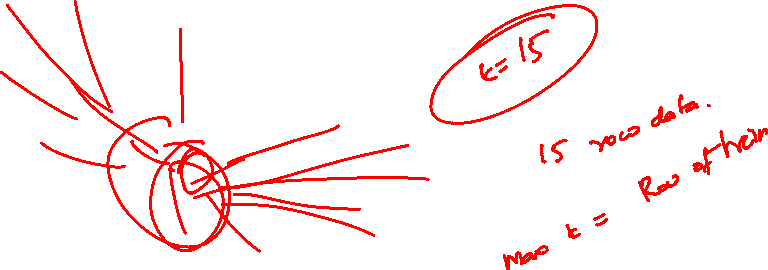 k=15
15 row data.
Max k = Row of train